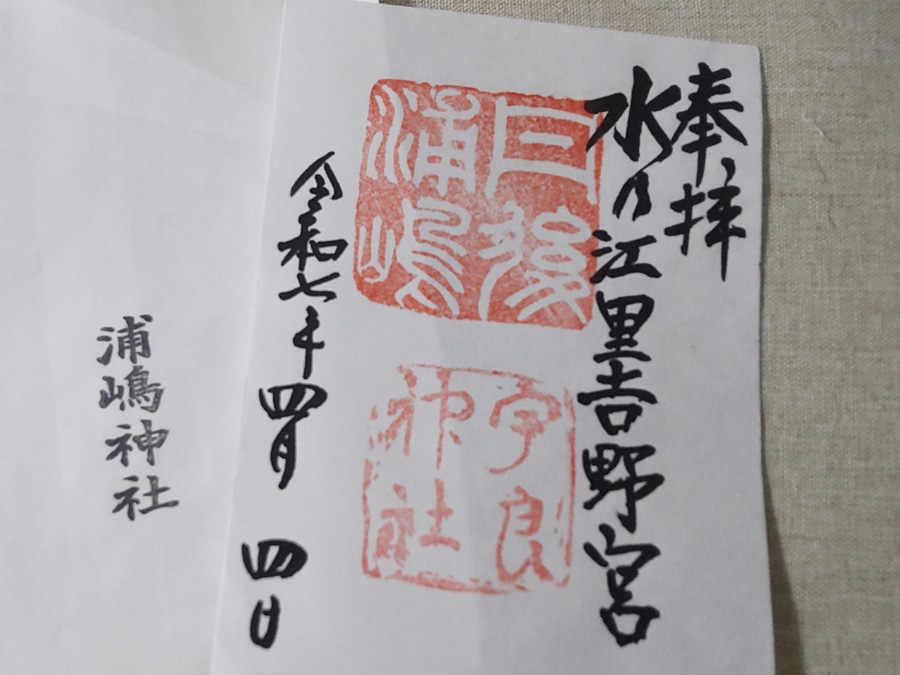 奉拝
水の江里𠮷野宮
丹後
浦嶋
宇良
神社
令和七年四月四日
浦嶋神社